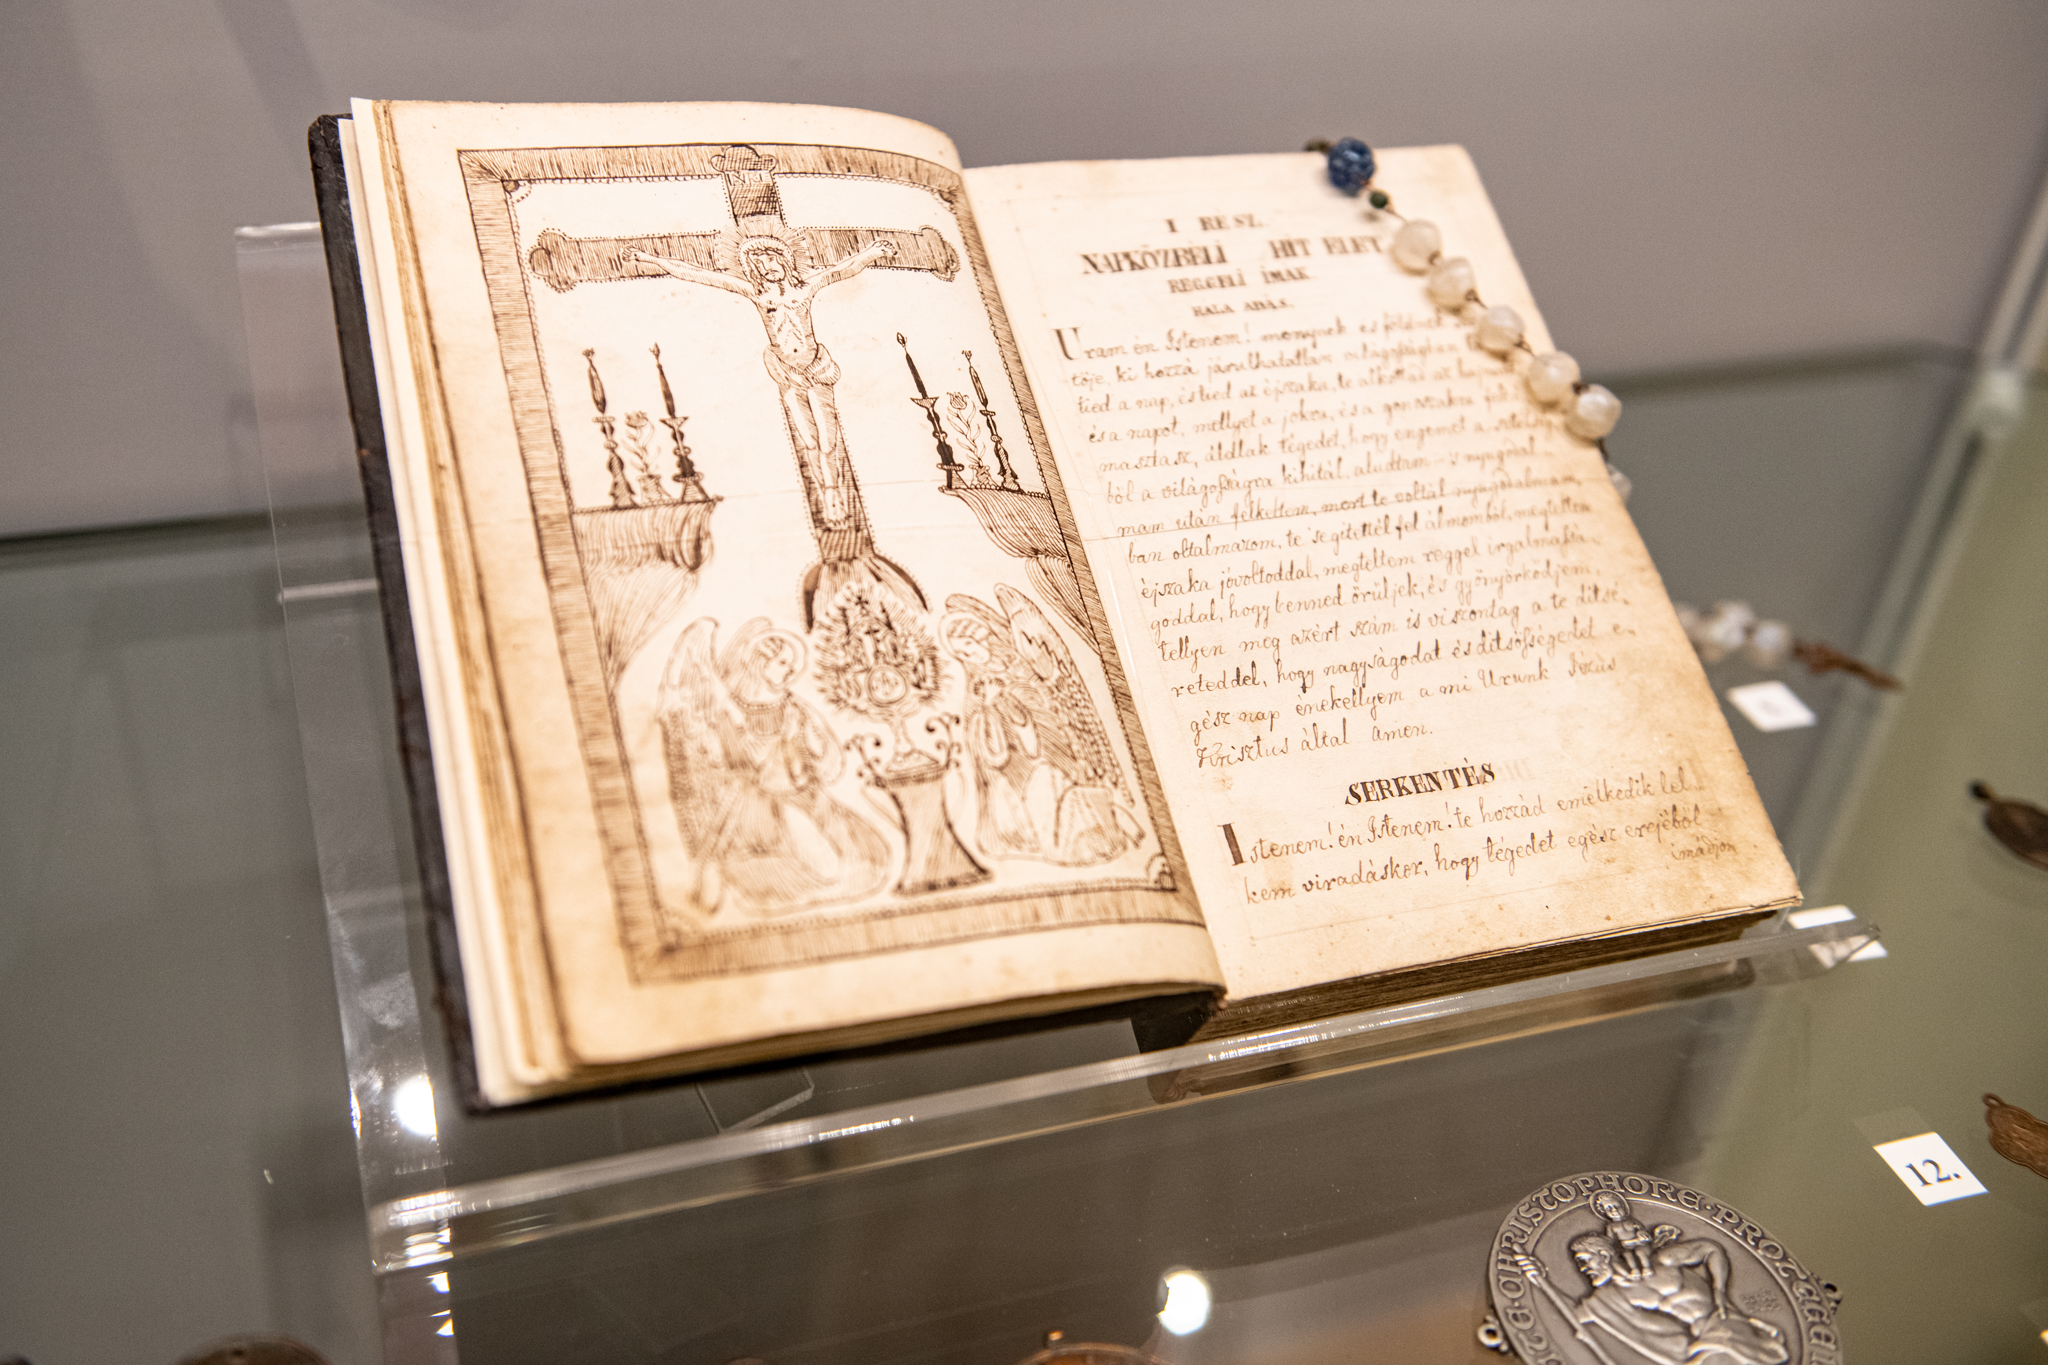 INRI
I RÉSZ.
NAPKÖZBÉLI HIT ELET
REGGELI IMAK
HALA ADÁS.
Uram én Istenem! menynek es földnek
töje, ki hozzá járulhatatlan világosságban
tied a nap, és tied az éjszaka, te alkottad az
és a napot, mellyet a jókra, és a gonoszakra fel
masztasz, áldlak tégedet, hogy engemet a setétség
ből a világosságra kihitál, aludtam és nyugodal
mam után felkeltem, mert te voltál nyugodalmam
ban oltalmazom, te segitettél fel álmomból, megtettem
éjszaka jóvoltoddal, megteltem reggel irgalmassá
goddal, hogy benned örüljek, és gyönyörködjem,
tellyen meg azért szám is viszontag a te ditsé
reteddel, hogy nagyságodat és ditsöségedet e
gész nap énekellyem a mi Urunk Jézus
Krisztus által amen.
SERKENTÉS
Istenem! én Istenem! te hozzád emelkedik lel
kem viradáskor, hogy tégedet egész erejéböl
imádjon
12.
CHRISTOPHORE·PROTEGE